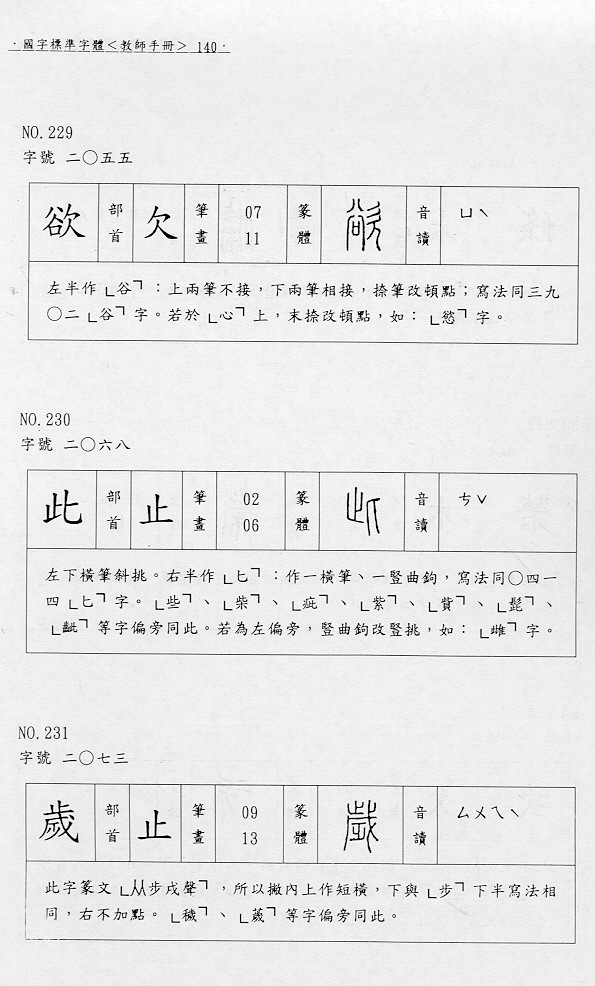 ·國字標準字體＜教師手冊＞ 140·
NO. 229
字號 二〇五五
欲 部首 欠 筆畫 07 11 篆體 音讀 ㄩˋ
左半作「谷」：上兩筆不接，下兩筆相接，捺筆改頓點；寫法同三九
〇二「谷」字。若於「心」上，末捺改頓點，如：「慾」字。
NO. 230
字號 二〇六八
此 部首 止 筆畫 02 06 篆體 音讀 ㄘˇ
左下橫筆斜挑。右半作「匕」：作一橫筆、一豎曲鉤，寫法同〇四一
四「匕」字。「些」、「柴」、「疵」、「紫」、「貲」、「髭」、
「齜」等字偏旁同此。若為左偏旁，豎曲鉤改豎挑，如：「雌」字。
NO. 231
字號 二〇七三
歲 部首 止 筆畫 09 13 篆體 音讀 ㄙㄨㄟˋ
此字篆文「从步戌聲」，所以撇內上作短橫，下與「步」下半寫法相
同，右不加點。「穢」、「薉」等字偏旁同此。